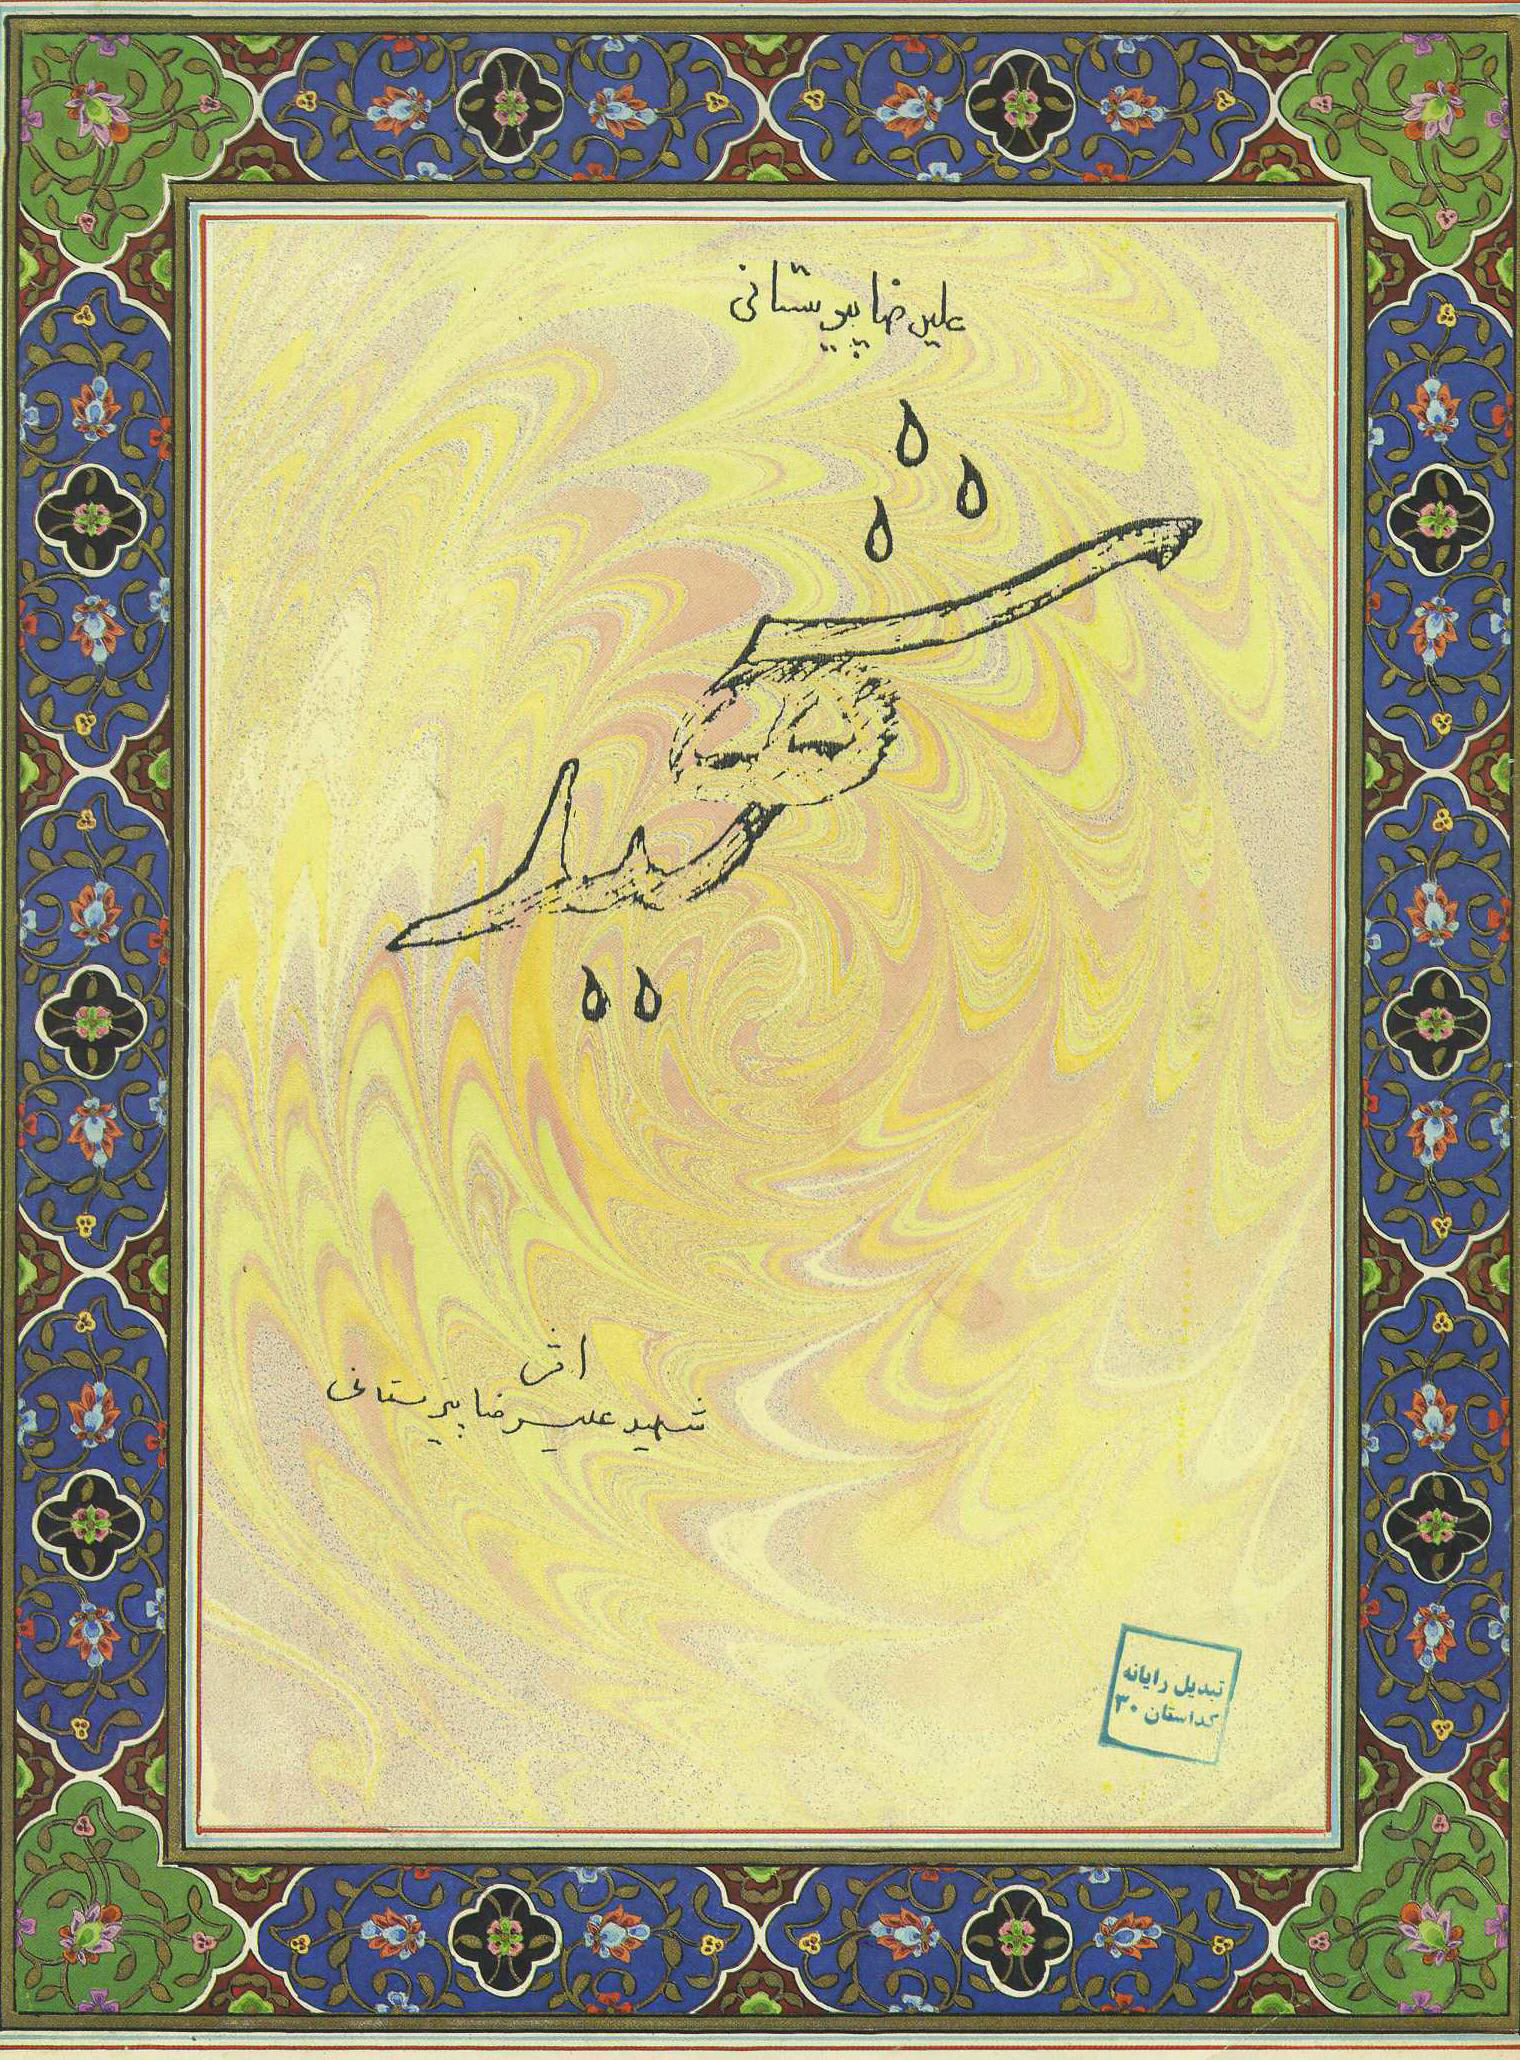 علیرضا پیرستانی
شهید
اثر
شهید علیرضا پیرستانی
تبدیل رایانه
کداستان ۳۰